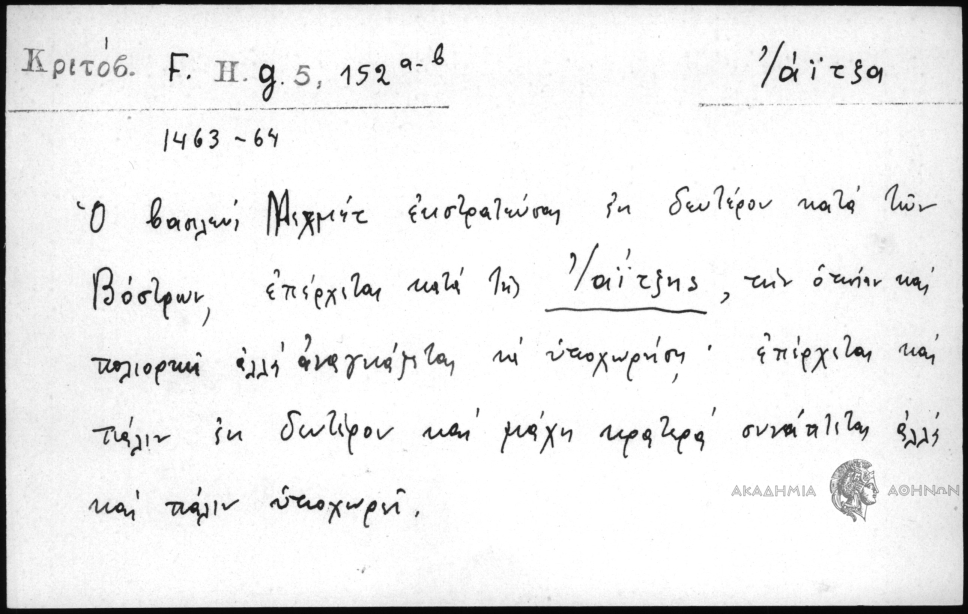 Κριτόβ. F. H. g. 5, 152 a-b
Ἰάϊτζα
1463-64
Ὁ βασιλεύς Μεχμέτ ἐκστρατεύσας ἐκ δευτέρου κατά τῶν
Βόστρων, ἐπέρχεται κατά τῆς Ἰαΐτζης, τήν ὁποίαν καί
πολιορκεῖ ἀλλά ἀναγκάζεται νά ὑποχωρήσῃ· ἐπέρχεται καί
πάλιν ἐκ δευτέρου καί μάχη κρατερά συνάπτεται ἀλλά
καί πάλιν ὑποχωρεῖ.
ΑΚΑΔΗΜΙΑ ΑΘΗΝΩΝ